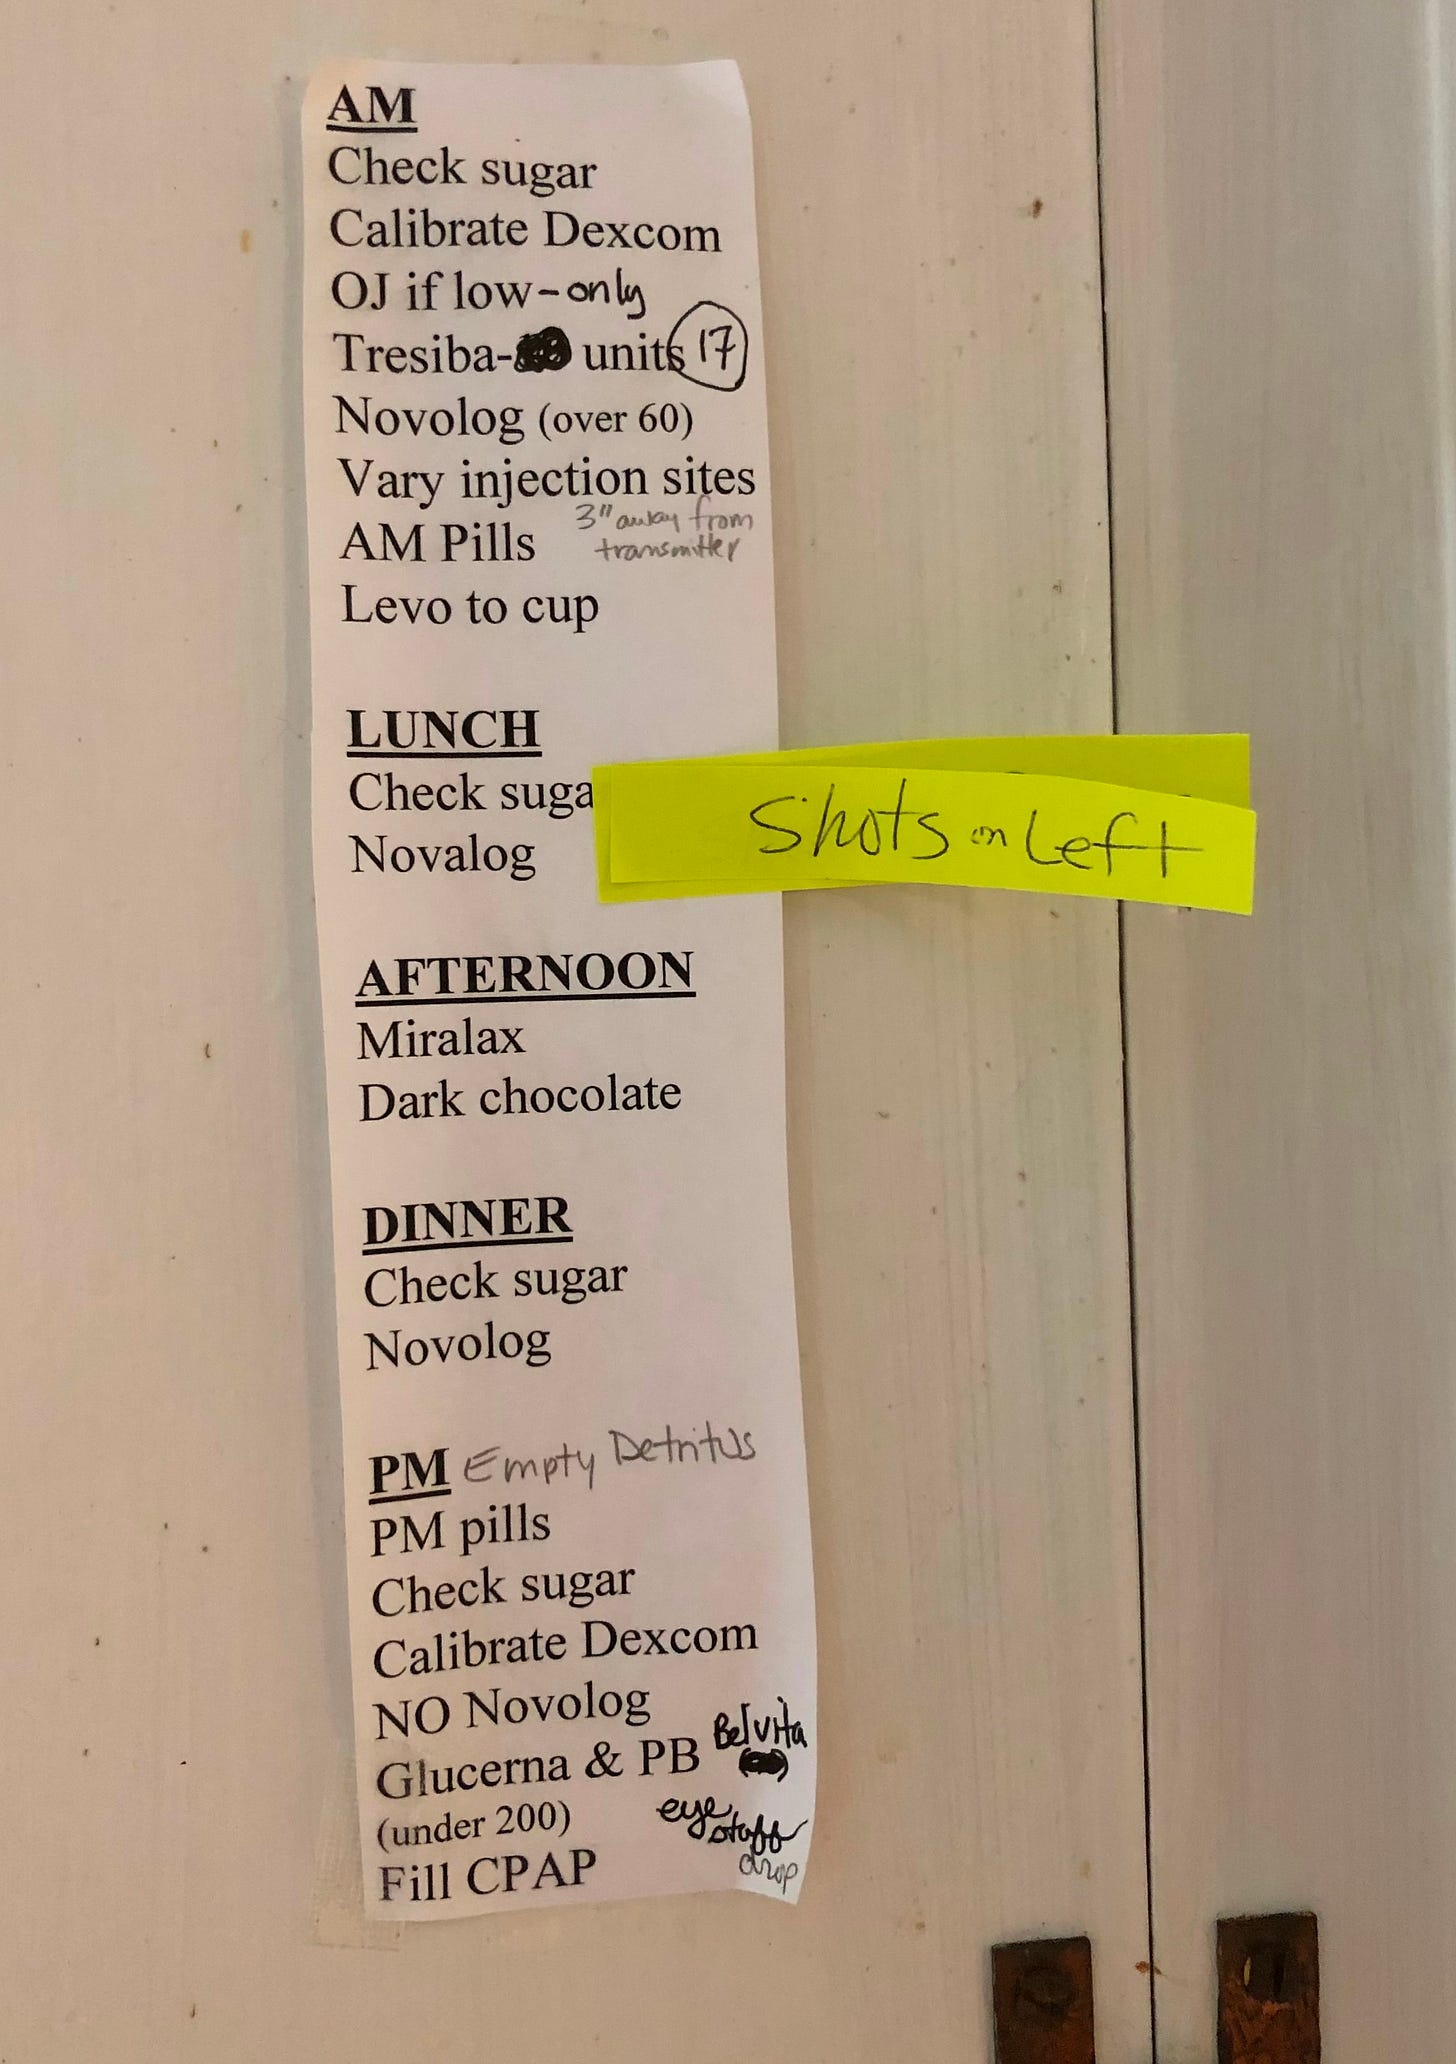 AM
Check sugar
Calibrate Dexcom
OJ if low - only
Tresiba- units 17
Novolog (over 60)
Vary injection sites
3" away from
transmitter
AM Pills
Levo to cup
LUNCH
Check suga
Novalog
Shots on Left
AFTERNOON
Miralax
Dark chocolate
DINNER
Check sugar
Novolog
PM Empty Detritus
PM pills
Check sugar
Calibrate Dexcom
NO Novolog
Glucerna & PB Belvita
(under 200)
eye
stuff
drop
Fill CPAP